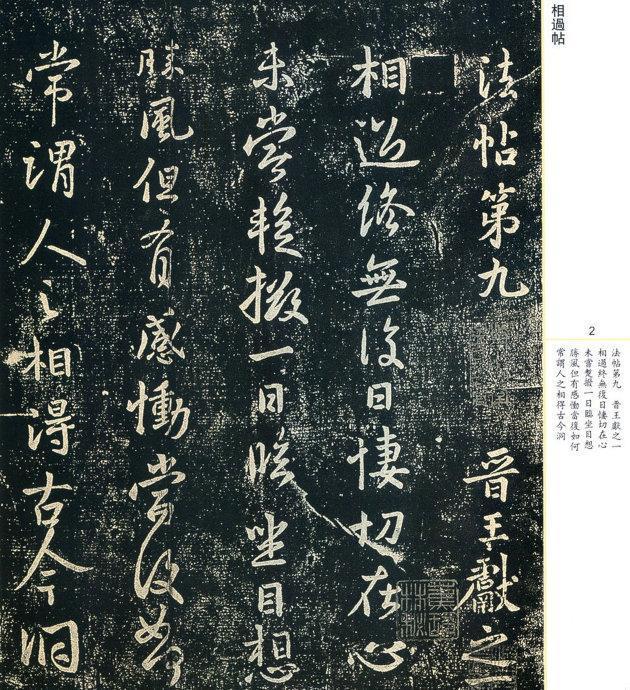 相過帖
法帖第九 晋王獻之一
相過終無復日悽切在心
未嘗暫撥一日臨坐目想
勝風但有感慟當復如何
常謂人之相得古今洞
2
法帖第九 晋王獻之一
相過終無復日悽切在心
未嘗暫撥一日臨坐目想
勝風但有感慟當復如何
常謂人之相得古今洞